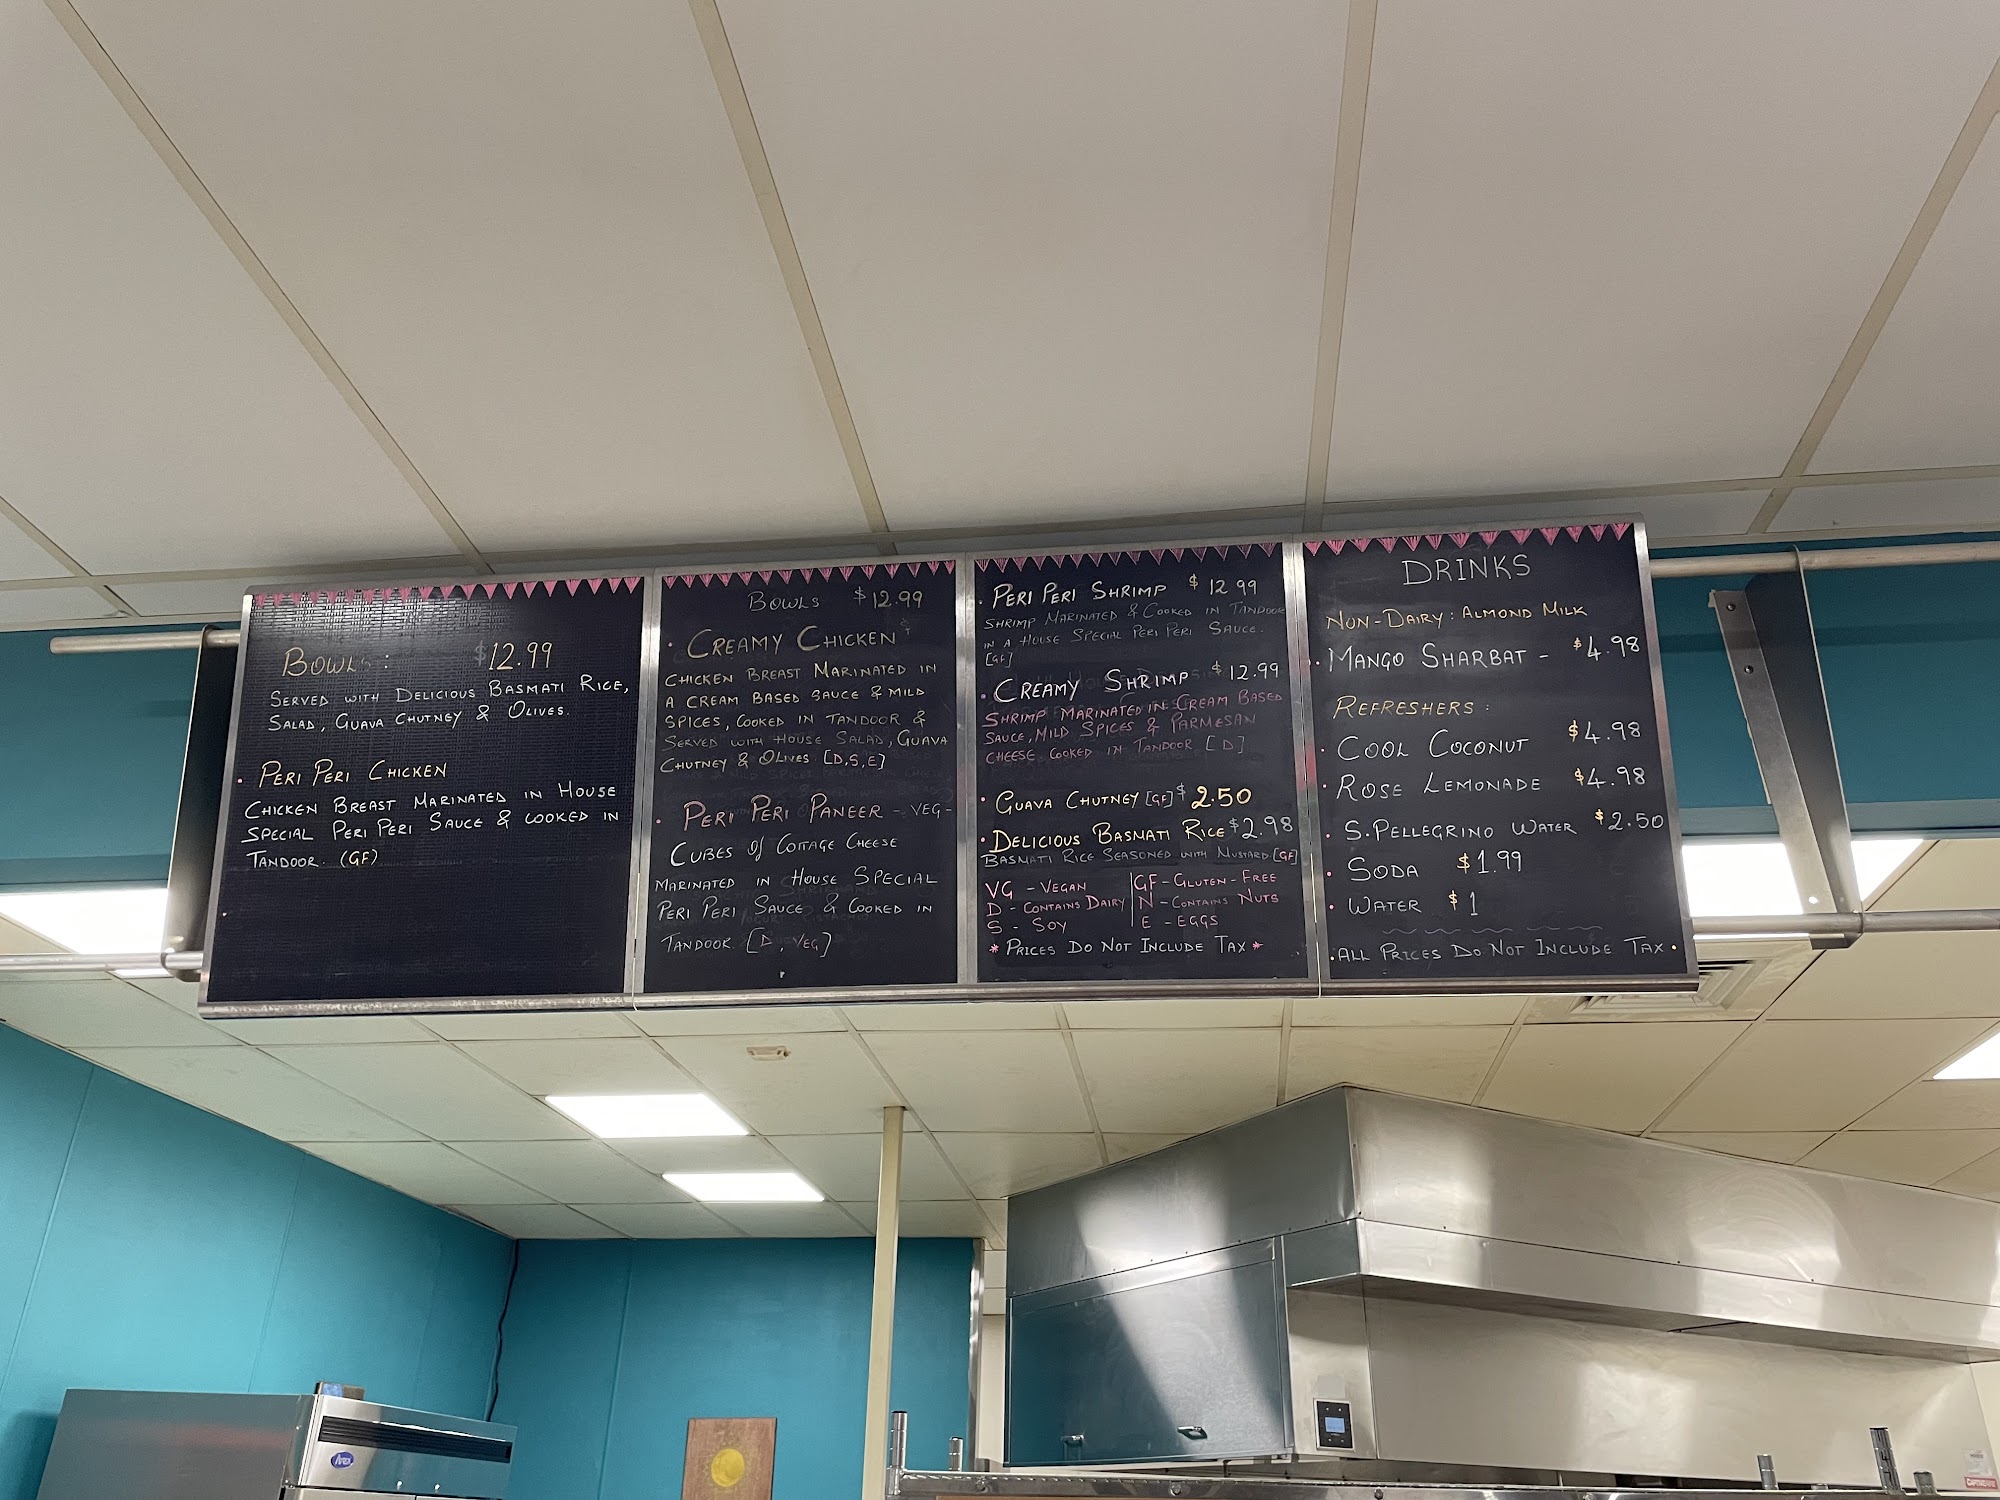 BOWLS: $12.99
SERVED WITH DELICIOUS BASMATI RICE,
SALAD, GUAVA CHUTNEY & OLIVES.
• PERI PERI CHICKEN
CHICKEN BREAST MARINATED IN HOUSE
SPECIAL PERI PERI SAUCE & COOKED IN
TANDOOR. (GF)
BOWLS $12.99
• CREAMY CHICKEN
CHICKEN BREAST MARINATED IN
A CREAM BASED SAUCE & MILD
SPICES, COOKED IN TANDOOR &
SERVED WITH HOUSE SALAD, GUAVA
CHUTNEY & OLIVES [D,S,E]
• PERI PERI PANEER - VEG-
CUBES Of COTTAGE CHEESE
MARINATED IN HOUSE SPECIAL
PERI PERI SAUCE & COOKED IN
TANDOOR [D, VEG]
• PERI PERI SHRIMP $12.99
SHRIMP MARINATED & COOKED IN TANDOOR
IN A HOUSE SPECIAL PERI PERI SAUCE.
[GF]
• CREAMY SHRIMP $12.99
SHRIMP MARINATED IN CREAM BASED
SAUCE, MILD SPICES & PARMESAN
CHEESE COOKED IN TANDOOR [D]
• GUAVA CHUTNEY [GF] $2.50
• DELICIOUS BASMATI RICE $2.98
BASMATI RICE SEASONED WITH MUSTARD [GF]
VG - VEGAN
D - CONTAINS DAIRY
S - SOY
GF - GLUTEN-FREE
N - CONTAINS NUTS
E - EGGS
* PRICES DO NOT INCLUDE TAX *
DRINKS
NON-DAIRY: ALMOND MILK
• MANGO SHARBAT - $4.98
REFRESHERS:
• COOL COCONUT $4.98
• ROSE LEMONADE $4.98
• S.PELLEGRINO WATER $2.50
• SODA $1.99
• WATER $1
• ALL PRICES DO NOT INCLUDE TAX •